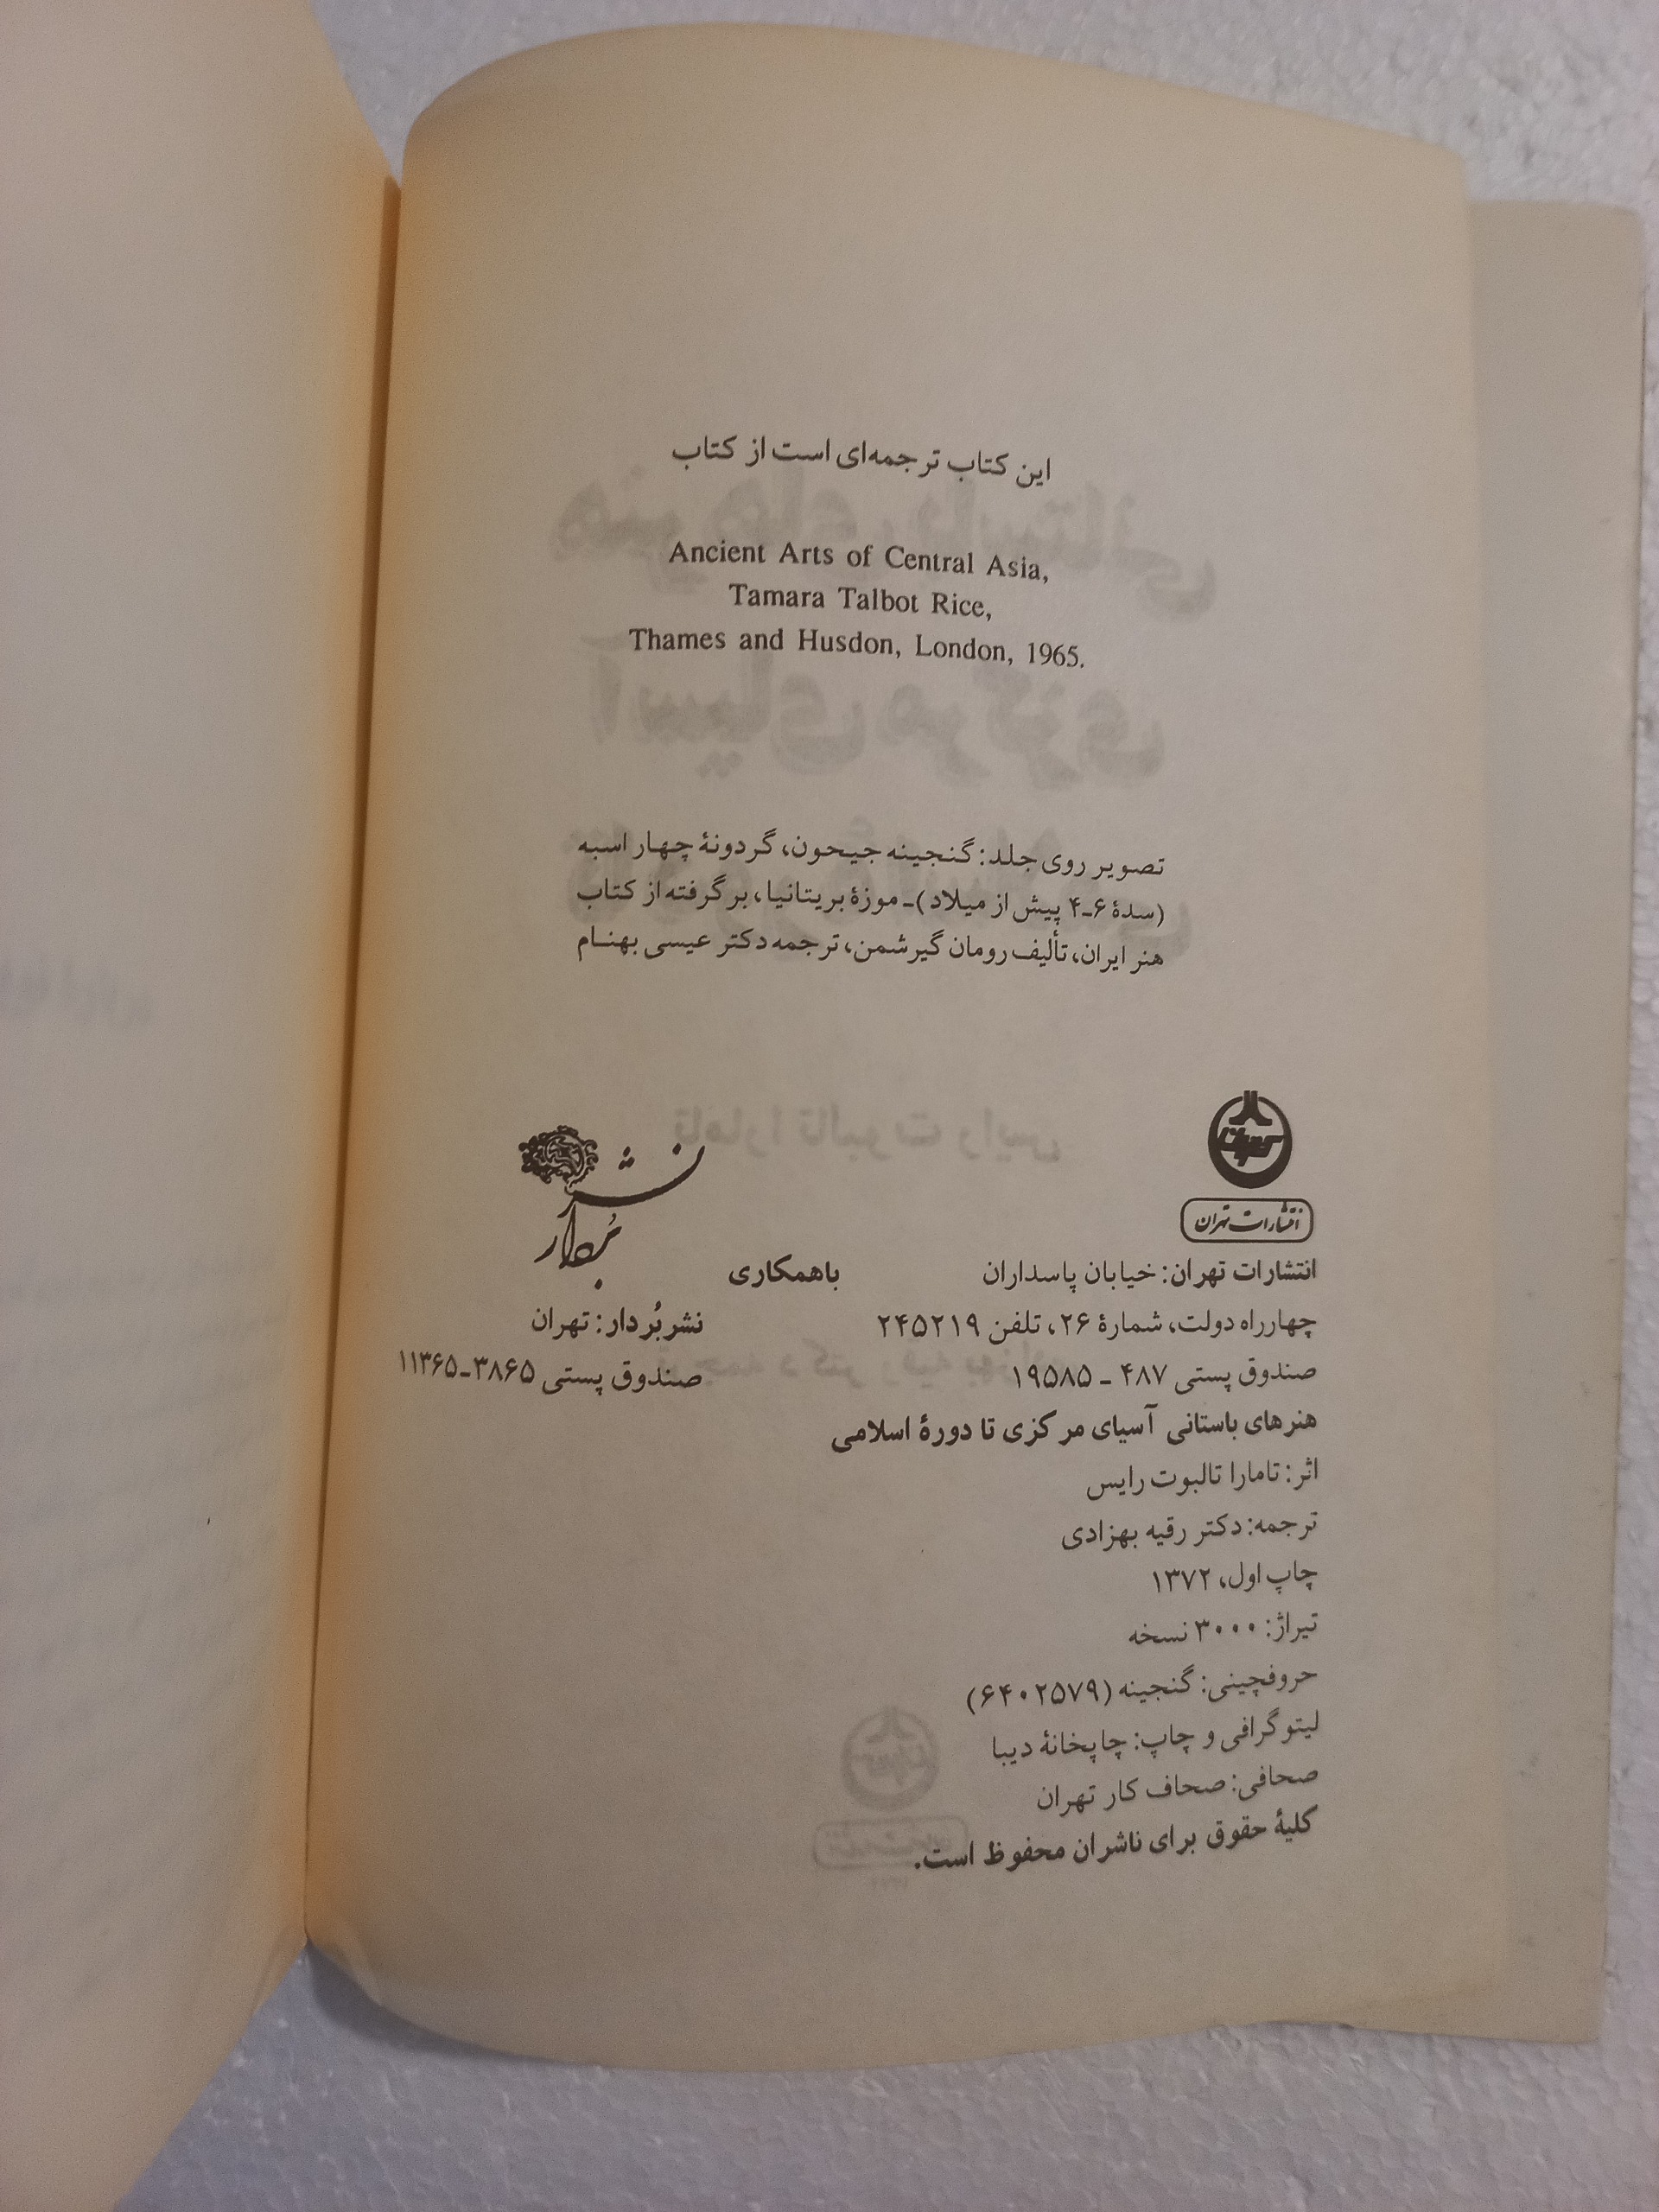 این کتاب ترجمه‌ای است از کتاب
Ancient Arts of Central Asia,
Tamara Talbot Rice,
Thames and Husdon, London, 1965.
تصویر روی جلد: گنجینه جیحون، گردونهٔ چهار اسبه
(سدهٔ ۶-۴ پیش از میلاد)- موزهٔ بریتانیا، برگرفته از کتاب
هنر ایران، تألیف رومان گیرشمن، ترجمه دکتر عیسی بهنام
تهران
انتشارات تهران
انتشارات تهران: خیابان پاسداران
چهارراه دولت، شمارهٔ ۲۶، تلفن ۲۴۵۲۱۹
صندوق پستی ۴۸۷ - ۱۹۵۸۵
باهمکاری
نشر بُردار
نشر بُردار: تهران
صندوق پستی ۳۸۶۵-۱۱۳۶۵
هنرهای باستانی آسیای مرکزی تا دورهٔ اسلامی
اثر: تامارا تالبوت رایس
ترجمه: دکتر رقیه بهزادی
چاپ اول، ۱۳۷۲
تیراژ: ۳۰۰۰ نسخه
حروفچینی: گنجینه (۶۴۰۲۵۷۹)
لیتوگرافی و چاپ: چاپخانهٔ دیبا
صحافی: صحاف کار تهران
کلیهٔ حقوق برای ناشران محفوظ است.